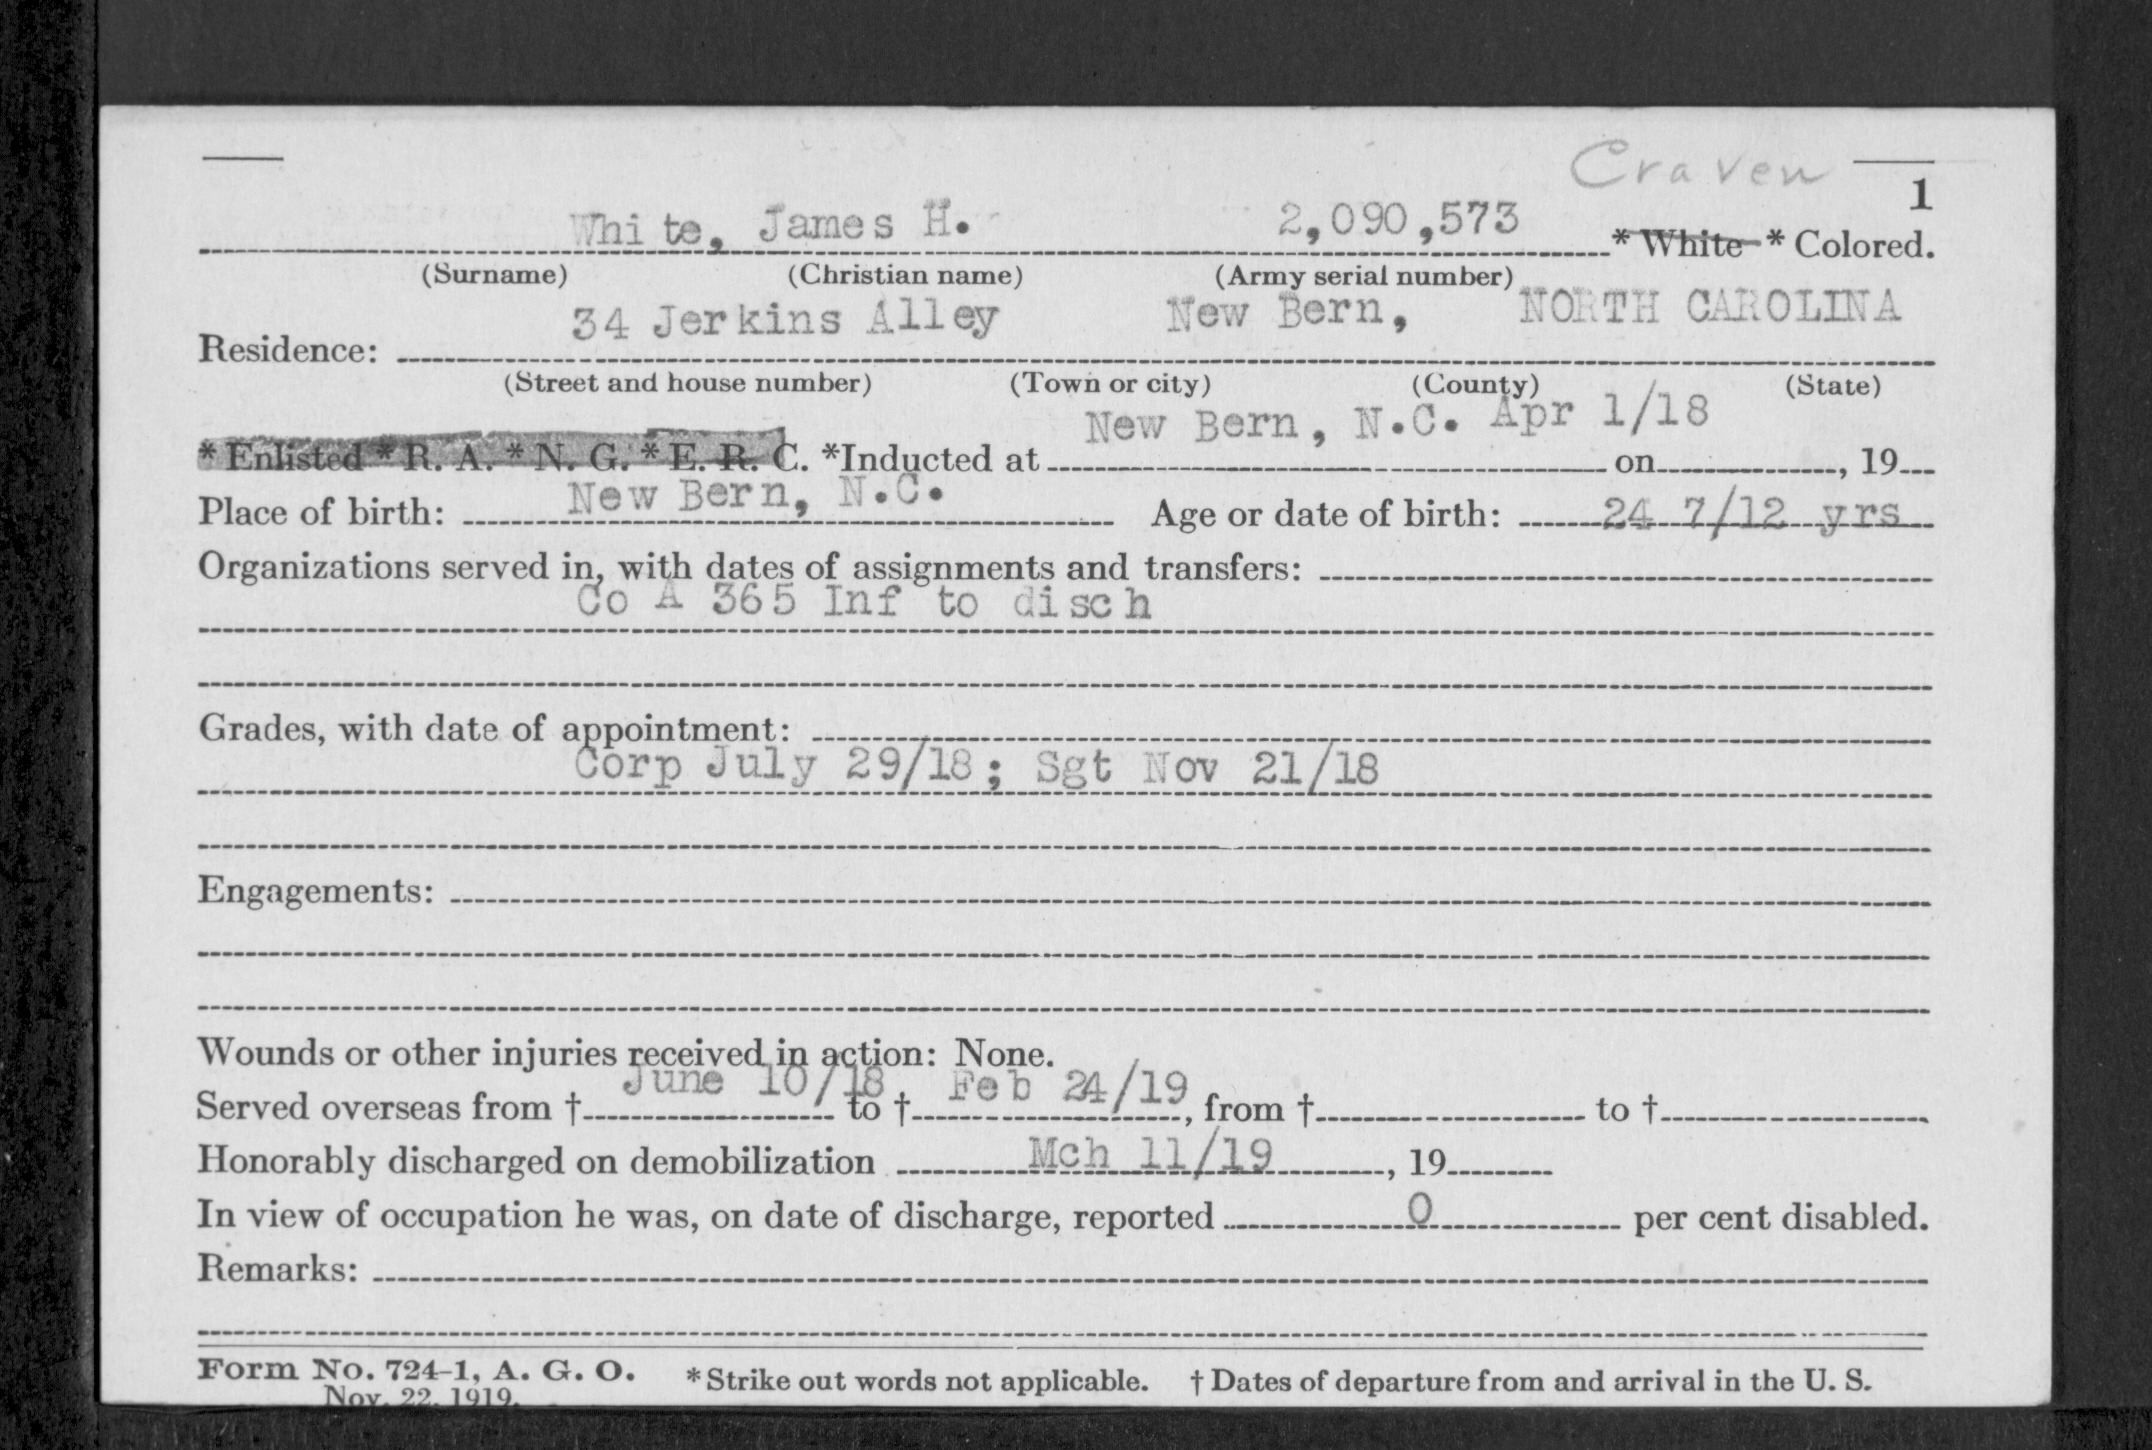 Craven
1
White, James H. 2,090,573 * White * Colored.
(Surname) (Christian name) (Army serial number)
34 Jerkins Alley New Bern, NORTH CAROLINA
Residence:
(Street and house number) (Town or city) (County) (State)
New Bern, N.C. Apr 1/18
* Enlisted * R. A. * N. G. * E. R. C. *Inducted at on , 19
Place of birth: New Bern, N.C. Age or date of birth: 24 7/12 yrs
Organizations served in, with dates of assignments and transfers:
Co A 365 Inf to disch
Grades, with date of appointment:
Corp July 29/18; Sgt Nov 21/18
Engagements:
Wounds or other injuries received in action: None.
Served overseas from † June 10/18 to † Feb 24/19, from † to †
Honorably discharged on demobilization Mch 11/19, 19
In view of occupation he was, on date of discharge, reported 0 per cent disabled.
Remarks:
Form No. 724-1, A. G. O. * Strike out words not applicable. † Dates of departure from and arrival in the U. S.
Nov. 22, 1919.